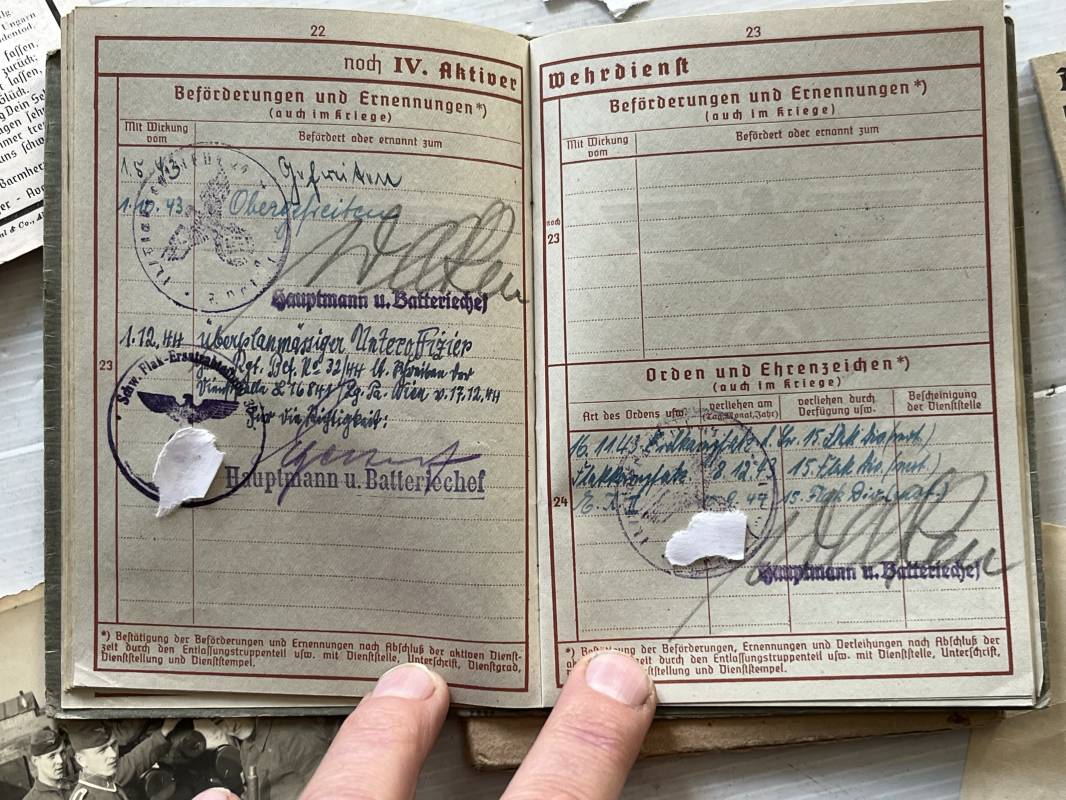 22
noch IV. Aktiver
Beförderungen und Ernennungen*)
(auch im Kriege)
Mit Wirkung
vom
Befördert oder ernannt zum
1.5.43 Gefreiten
1.10.43 Obergefreiten
Hauptmann u. Batteriechef
1.12.44 überplanmässiger Unteroffizier
23
Rgt. Bef. No 32/44
Wien v. 17.12.44
Schw. Flak-Ersatz
Für die Richtigkeit:
Hauptmann u. Batteriechef
*) Bestätigung der Beförderungen und Ernennungen nach Abschluß der aktiven Dienst-
zeit durch den Entlassungstruppenteil usw. mit Dienststelle, Unterschrift, Dienstgrad,
Dienststellung und Dienststempel.
23
Wehrdienst
Beförderungen und Ernennungen*)
(auch im Kriege)
Mit Wirkung
vom
Befördert oder ernannt zum
noch
23
Orden und Ehrenzeichen*)
(auch im Kriege)
Art des Ordens usw.
verliehen am
(Tag, Monat, Jahr)
verliehen durch
Verfügung usw.
Bescheinigung
der Dienststelle
16.11.43 15. Flak Div. (mot.)
8.12.43 15. Flak Div. (mot.)
24
15. Flak Div. (mot.)
Hauptmann u. Batteriechef
*) Bestätigung der Beförderungen, Ernennungen und Verleihungen nach Abschluß der
zeit durch den Entlassungstruppenteil usw. mit Dienststelle, Unterschrift,
Dienststellung und Dienststempel.
Ungarn
fassen,
zurück;
Glück.